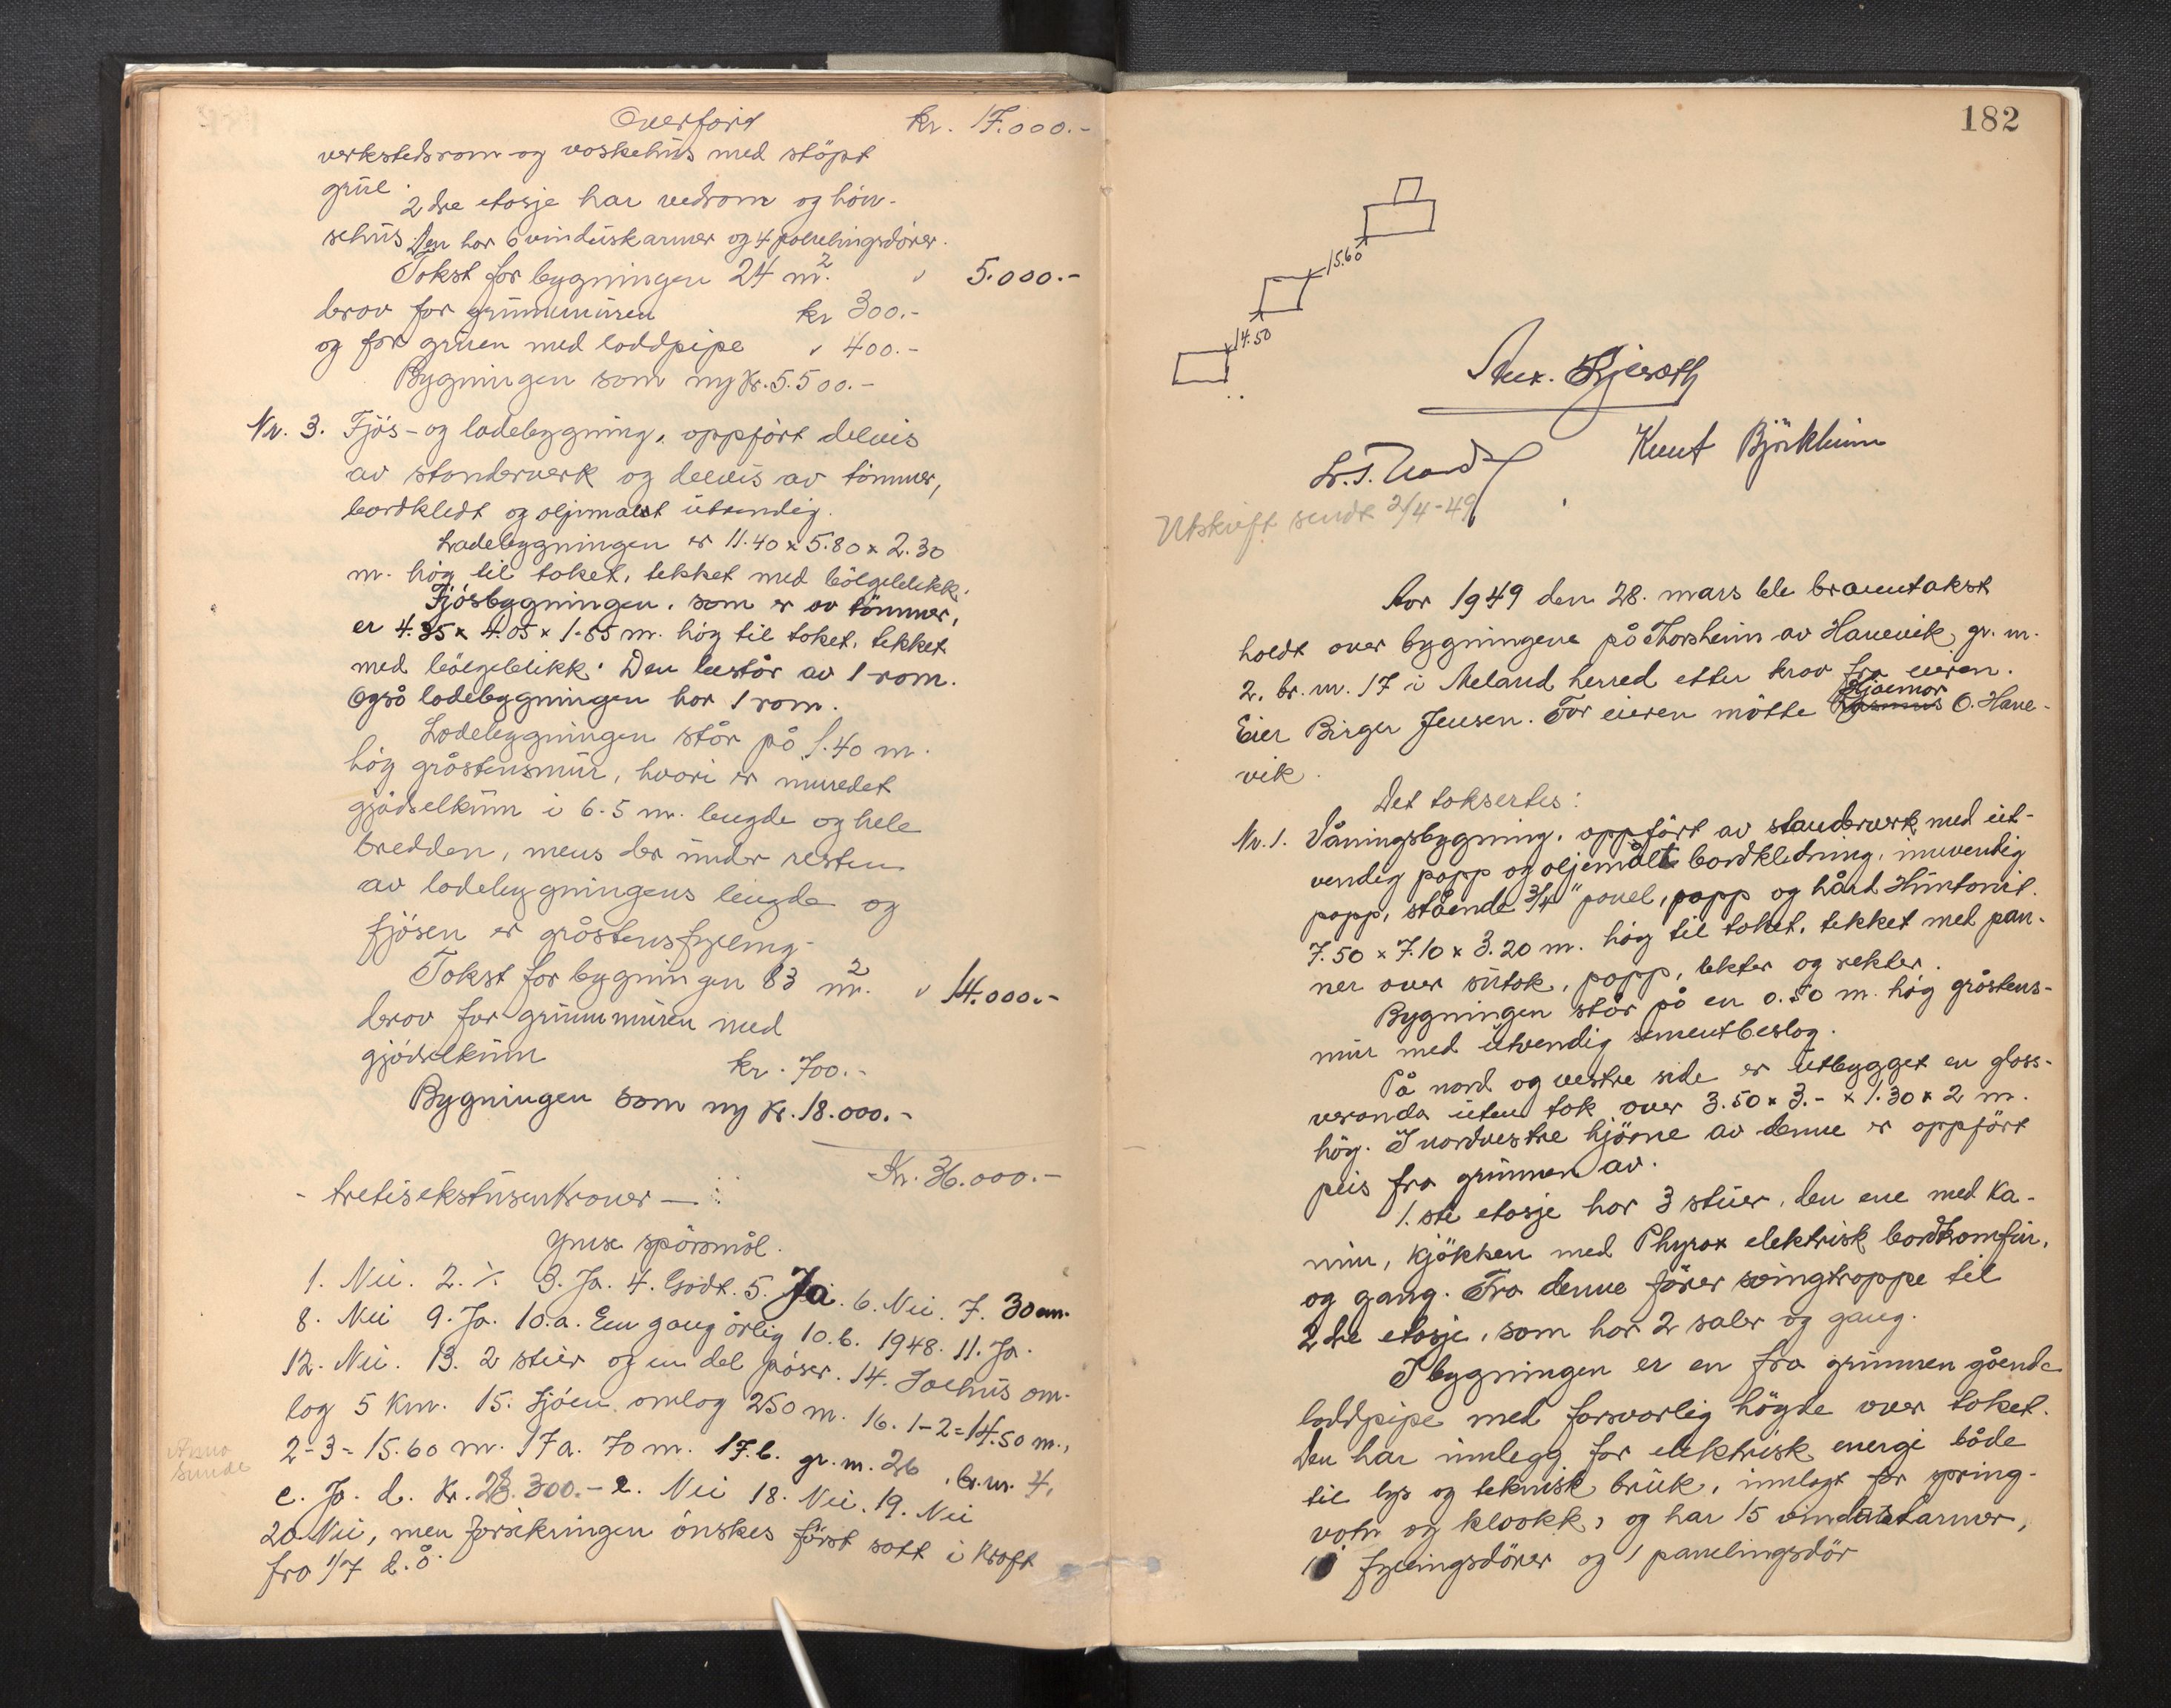 Overført kr. 17.000.-
verkstedsrom og vaskehus med støpt
grue.
2dre etasje har vedrom og høn-
sehus. Den har 6 vinduskarmer og 4 panelingsdører.
Takst for bygningen 24 m². " 5.000.-
derav for grunnmuren kr 300.-
og for gruen med loddpipe " 400.-
Bygningen som ny kr. 5.500.-
Nr. 3. Fjøs- og ladebygning, oppført delvis
av standerverk og delvis av tømmer,
bordkledt og oljemalt utvendig.
Ladebygningen er 11.40 x 5.80 x 2.30
m. høg til taket, tekket med bølgeblikk.
Fjøsbygningen, som er av tømmer,
er 4.35 x 4.05 x 1.85 m. høg til taket, tekket
med bølgeblikk. Den består av 1 rom.
Også ladebygningen har 1 rom.
Ladebygningen står på 1.40 m.
høg gråstensmur, hvori er innredet
gjødselkum i 6.5 m. lengde og hele
bredden, mens der under resten
av ladebygningens lengde og
fjøsen er gråstensfylling.
Takst for bygningen 83 m². " 14.000.-
derav for grunnmuren med
gjødselkum kr. 700.-
Bygningen som ny kr. 18.000.-
Kr. 36.000.-
- trettisekstusenkroner —
Ymse spørsmål.
1. Nei. 2. ٪ 3. Ja. 4. Godt. 5. Ja. 6. Nei. 7. 30 cm.
8. Nei 9. Ja. 10.a. Een gang årlig 10.b. 1948. 11. Ja.
12. Nei. 13. 2 stier og en del pøser. 14. Joehus om-
lag 5 km. 15. Sjøen omlag 250 m. 16. 1-2 = 14.50 m.,
2-3 = 15.60 m. 17a. 70 m. 17.b. gr. nr. 26, br. nr. 4,
c. Ja. d. kr. 28.300.- e. Nei 18. Nei. 19. Nei
20. Nei, men forsikringen ønskes først satt i kraft
fra 1/7 d.å.
182
15.60
14.50
Knut Bjørkheim
Utskrift sendt 2/4-49
Aar 1949 den 28. mars ble branntakst
holdt over bygningene på Thorsheim av Hanevik, gr. nr.
2, br. nr. 17 i Meland herred etter krav fra eieren.
Eier Birger Jensen. For eieren møtte Hjalmar Rasmus O. Hane-
vik.
Det taksertes:
Nr. 1. Våningsbygning, oppført av standerverk med ut-
vendig papp og oljemålt bordkledning, innvendig
papp, stående 3/4" panel, papp og hård Huntonit.
7.50 x 7.10 x 3.20 m. høg til taket, tekket med pan-
ner over sutak, papp, lekter og rekter.
Bygningen står på en 0.50 m. høg gråstens-
mur med utvendig sementbeslag.
På nord og vestre side er utbygget en glass-
veranda uten tak over 3.50 x 3.- x 1.30 x 2 m.
høg. I nordvestre hjørne av denne er oppført
peis fra grunnen av.
1.ste etasje har 3 stuer, den ene med ka-
min, kjøkken med Phyrox elektrisk bordkomfur,
og gang. Fra denne fører svingtrappe til
2dre etasje, som har 2 saler og gang.
I bygningen er en fra grunnen gående
loddpipe med forsvarlig høgde over taket.
Den har innlegg for elektrisk energi både
til lys og teknisk bruk, innlagt for spring-
vatn og kloakk, og har 15 vinduskarmer,
fyllingsdører og 1 panelingsdør